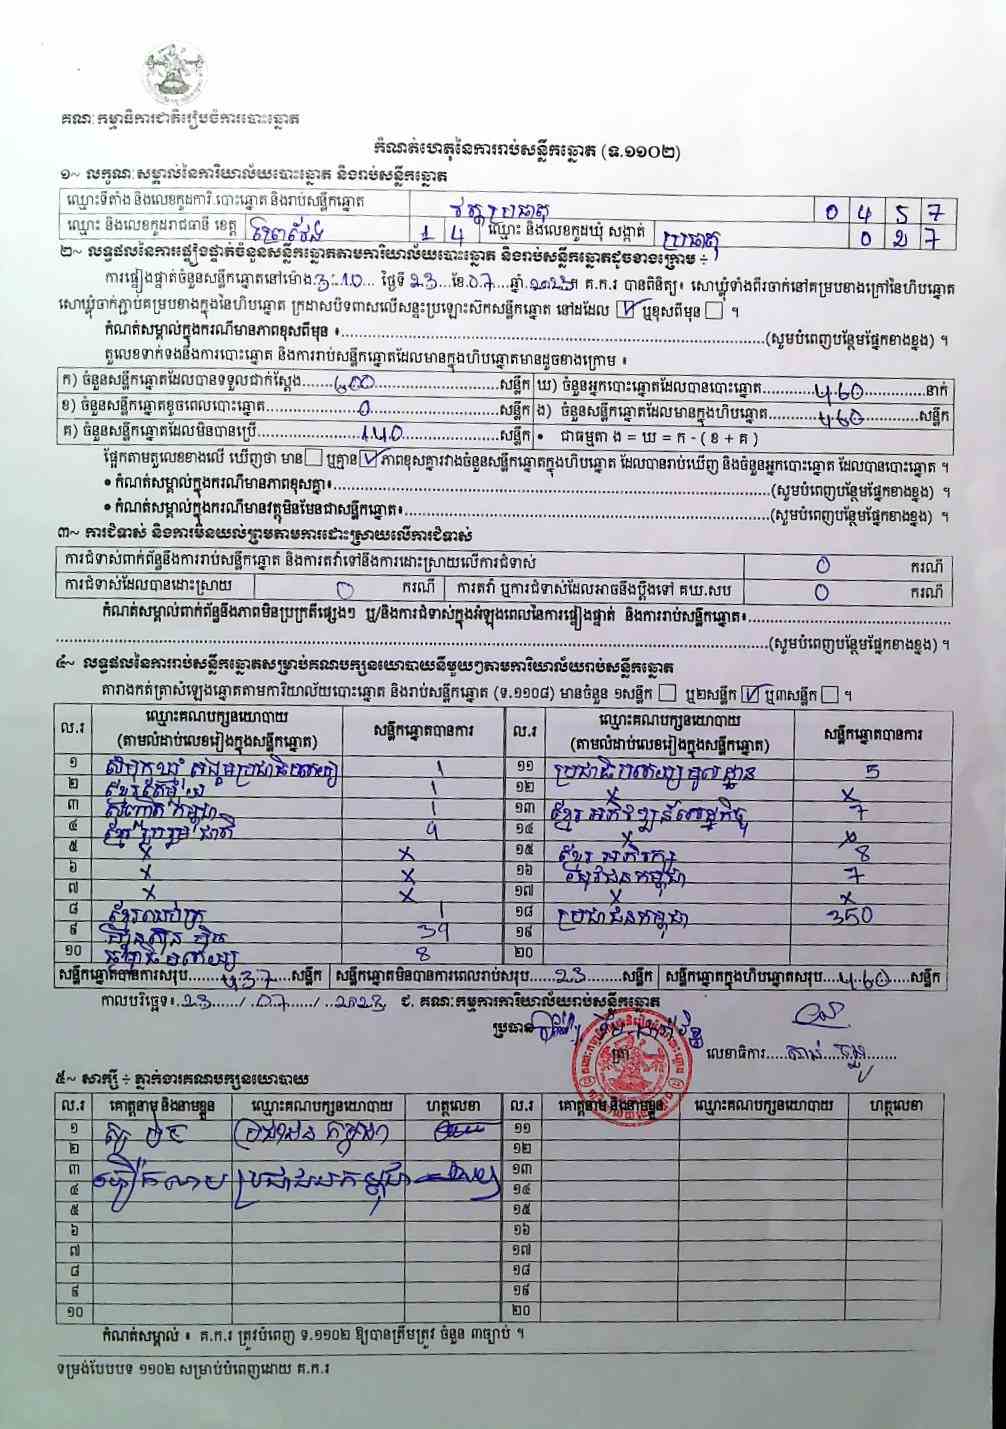 គណៈកម្មាធិការជាតិរៀបចំការបោះឆ្នោត
កំណត់ហេតុនៃការរាប់សន្លឹកឆ្នោត (ទ.១១០២)
១~ លក្ខណៈសម្គាល់នៃការិយាល័យបោះឆ្នោត និងរាប់សន្លឹកឆ្នោត
ឈ្មោះទីតាំង និងលេខកូដការិ.បោះឆ្នោត និងរាប់សន្លឹកឆ្នោត វត្តប្រធាតុ 0 4 5 7
ឈ្មោះ និងលេខកូដរាជធានី ខេត្ត 1 4 ឈ្មោះ និងលេខកូដឃុំ សង្កាត់ ប្រធាតុ 0 2 7
២~ លទ្ធផលនៃការផ្ទៀងផ្ទាត់ចំនួនសន្លឹកឆ្នោតតាមការិយាល័យបោះឆ្នោត និងរាប់សន្លឹកឆ្នោតដូចខាងក្រោម ៖
ការផ្ទៀងផ្ទាត់ចំនួនសន្លឹកឆ្នោតនៅម៉ោង 3:10 ថ្ងៃទី 23 ខែ 07 ឆ្នាំ 2023 គ.ក.រ បានពិនិត្យ៖ សោឃ្លុំទាំងពីរចាក់នៅគម្របខាងក្រៅនៃហិបឆ្នោត
សោឃ្លុំចាក់ភ្ជាប់គម្របខាងក្នុងនៃហិបឆ្នោត ក្រដាសបិទពាសលើសន្ទះប្រឡោះស៊កសន្លឹកឆ្នោត នៅដដែល ☑ ឬខុសពីមុន ☐ ។
កំណត់សម្គាល់ក្នុងករណីមានភាពខុសពីមុន ៖ (សូមបំពេញបន្ថែមផ្នែកខាងខ្នង) ។
តួលេខទាក់ទងនឹងការបោះឆ្នោត និងការរាប់សន្លឹកឆ្នោតដែលមានក្នុងហិបឆ្នោតមានដូចខាងក្រោម ៖
ក) ចំនួនសន្លឹកឆ្នោតដែលបានទទួលជាក់ស្តែង 600 សន្លឹក ឃ) ចំនួនអ្នកបោះឆ្នោតដែលបានបោះឆ្នោត 460 នាក់
ខ) ចំនួនសន្លឹកឆ្នោតខូចពេលបោះឆ្នោត 0 សន្លឹក ង) ចំនួនសន្លឹកឆ្នោតដែលមានក្នុងហិបឆ្នោត 460 សន្លឹក
គ) ចំនួនសន្លឹកឆ្នោតដែលមិនបានប្រើ 140 សន្លឹក • ជាធម្មតា ង = ឃ = ក - ( ខ + គ )
ផ្អែកតាមតួលេខខាងលើ ឃើញថា មាន ☐ ឬគ្មាន ☑ ភាពខុសគ្នារវាងចំនួនសន្លឹកឆ្នោតក្នុងហិបឆ្នោត ដែលបានរាប់ឃើញ និងចំនួនអ្នកបោះឆ្នោត ដែលបានបោះឆ្នោត ។
• កំណត់សម្គាល់ក្នុងករណីមានភាពខុសគ្នា៖ (សូមបំពេញបន្ថែមផ្នែកខាងខ្នង) ។
• កំណត់សម្គាល់ក្នុងករណីមានវត្ថុមិនមែនជាសន្លឹកឆ្នោត៖ (សូមបំពេញបន្ថែមផ្នែកខាងខ្នង) ។
៣~ ការជំទាស់ និងការមិនយល់ព្រមតាមការដោះស្រាយលើការជំទាស់
ការជំទាស់ពាក់ព័ន្ធនឹងការរាប់សន្លឹកឆ្នោត និងការតវ៉ាទៅនឹងការដោះស្រាយលើការជំទាស់ 0 ករណី
ការជំទាស់ដែលបានដោះស្រាយ 0 ករណី ការតវ៉ា ឬការជំទាស់ដែលអាចនឹងប្តឹងទៅ គឃ.សប 0 ករណី
កំណត់សម្គាល់ពាក់ព័ន្ធនឹងភាពមិនប្រក្រតីផ្សេងៗ ឬ/និងការជំទាស់ក្នុងអំឡុងពេលនៃការផ្ទៀងផ្ទាត់ និងការរាប់សន្លឹកឆ្នោត៖
(សូមបំពេញបន្ថែមផ្នែកខាងខ្នង) ។
៤~ លទ្ធផលនៃការរាប់សន្លឹកឆ្នោតសម្រាប់គណបក្សនយោបាយនីមួយៗតាមការិយាល័យរាប់សន្លឹកឆ្នោត
តារាងកត់ត្រាសំឡេងឆ្នោតតាមការិយាល័យបោះឆ្នោត និងរាប់សន្លឹកឆ្នោត (ទ.១១០៨) មានចំនួន ១សន្លឹក ☐ ឬ២សន្លឹក ☑ ឬ៣សន្លឹក ☐ ។
ល.រ ឈ្មោះគណបក្សនយោបាយ (តាមលំដាប់លេខរៀងក្នុងសន្លឹកឆ្នោត) សន្លឹកឆ្នោតបានការ ល.រ ឈ្មោះគណបក្សនយោបាយ (តាមលំដាប់លេខរៀងក្នុងសន្លឹកឆ្នោត) សន្លឹកឆ្នោតបានការ
១ សំបុកឃ្មុំ សង្គមប្រជាធិបតេយ្យ 1 ១១ ប្រជាធិបតេយ្យមូលដ្ឋាន 5
២ 1 ១២ x x
៣ កម្ពុជា 1 ១៣ ខ្មែរអភិវឌ្ឍន៍សេដ្ឋកិច្ច 7
៤ ខ្មែររួបរួមជាតិ 9 ១៤ x x
៥ x x ១៥ ខ្មែរអភិរក្ស 8
៦ x x ១៦ យុវជនកម្ពុជា 7
៧ x x ១៧ x x
៨ 1 ១៨ ប្រជាជនកម្ពុជា 350
៩ ហ្វ៊ុនស៊ិនប៉ិច 39 ១៩
១០ ធម្មាធិបតេយ្យ 8 ២០
សន្លឹកឆ្នោតបានការសរុប 437 សន្លឹក សន្លឹកឆ្នោតមិនបានការពេលរាប់សរុប 23 សន្លឹក សន្លឹកឆ្នោតក្នុងហិបឆ្នោតសរុប 460 សន្លឹក
កាលបរិច្ឆេទ៖ 23 / 07 / 2023 ជ. គណៈកម្មការការិយាល័យរាប់សន្លឹកឆ្នោត
ប្រធាន ត្រា លេខាធិការ
៥~ សាក្សី ÷ ភ្នាក់ងារគណបក្សនយោបាយ
ល.រ គោត្តនាម និងនាមខ្លួន ឈ្មោះគណបក្សនយោបាយ ហត្ថលេខា ល.រ គោត្តនាម និងនាមខ្លួន ឈ្មោះគណបក្សនយោបាយ ហត្ថលេខា
១ ប្រជាជនកម្ពុជា ១១
២ ១២
៣ ប្រជាជនកម្ពុជា ១៣
៤ ១៤
៥ ១៥
៦ ១៦
៧ ១៧
៨ ១៨
៩ ១៩
១០ ២០
កំណត់សម្គាល់ ៖ គ.ក.រ ត្រូវបំពេញ ទ.១១០២ ឱ្យបានត្រឹមត្រូវ ចំនួន ៣ច្បាប់ ។
ទម្រង់បែបបទ ១១០២ សម្រាប់បំពេញដោយ គ.ក.រ